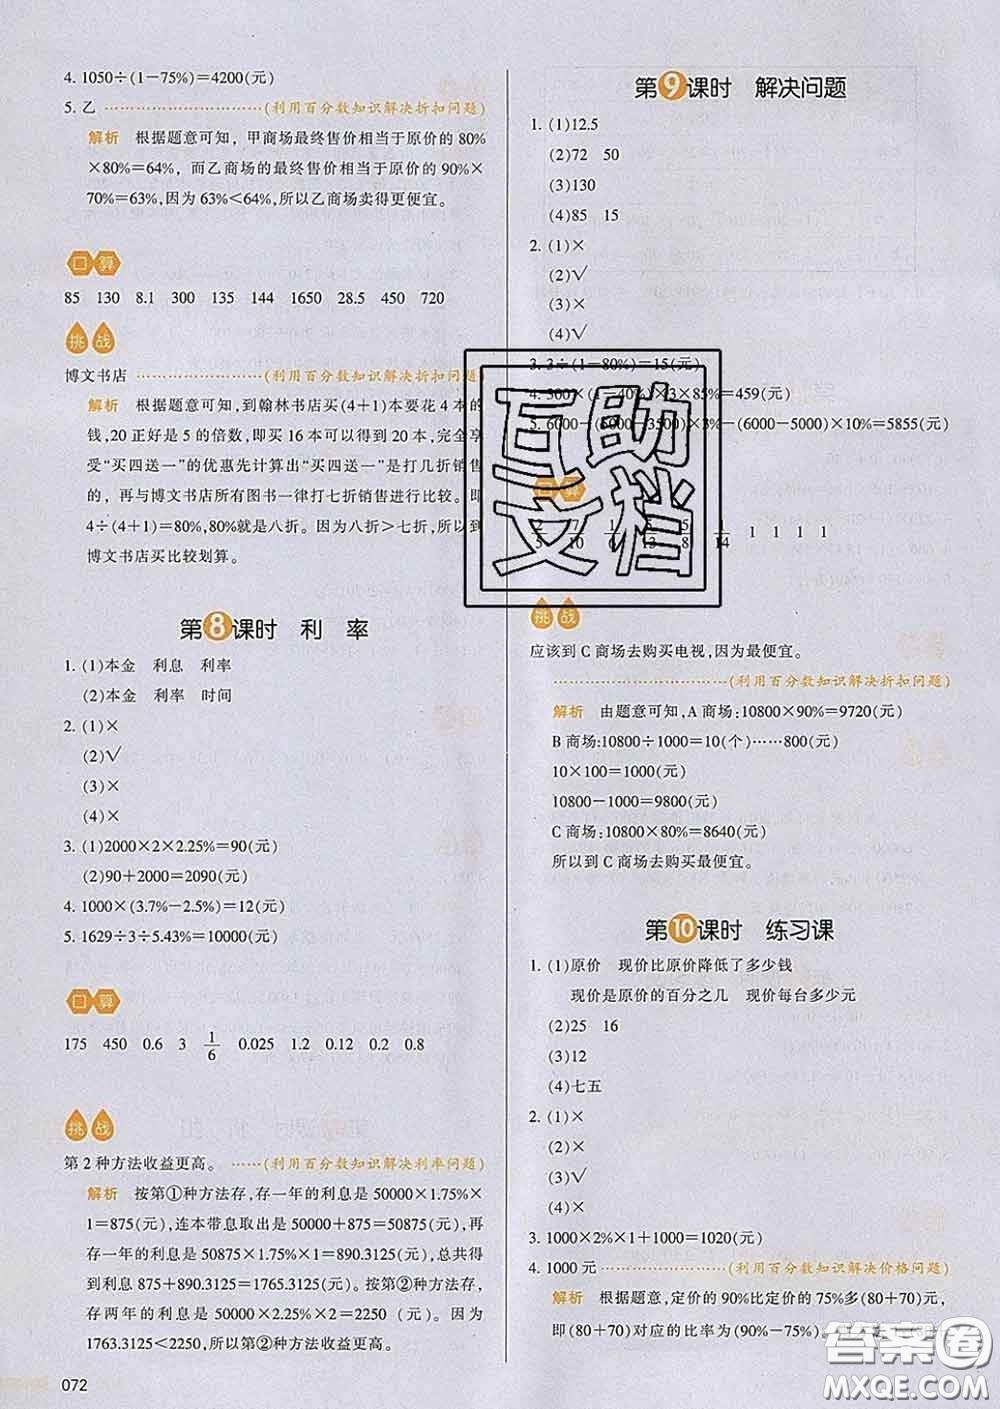 4. 1050÷(1－75%)＝4200(元)
5. 乙 ………………………(利用百分数知识解决折扣问题)
解析 根据题意可知，甲商场最终售价相当于原价的 80%
×80%＝64%，而乙商场的最终售价相当于原价的 90%×
70%＝63%,因为 63%＜64%,所以乙商场卖得更便宜。
口算
85 130 8.1 300 135 144 1650 28.5 450 720
挑战
博文书店 …………………(利用百分数知识解决折扣问题)
解析 根据题意可知,到翰林书店买(4＋1)本要花 4 本的
钱,20 正好是 5 的倍数,即买 16 本可以得到 20 本,完全享
受“买四送一”的优惠先计算出“买四送一”是打几折销售
的，再与博文书店所有图书一律打七折销售进行比较。即
4÷(4＋1)＝80%,80%就是八折。因为八折＞七折,所以到
博文书店买比较划算。
第8课时 利 率
1. (1)本金 利息 利率
(2)本金 利率 时间
2. (1)×
(2)√
(3)×
(4)×
3. (1)2000×2×2.25%＝90(元)
(2)90＋2000＝2090(元)
4. 1000×(3.7%－2.5%)＝12(元)
5. 1629÷3÷5.43%＝10000(元)
口算
175 450 0.6 3 1/6 0.025 1.2 0.12 0.2 0.8
挑战
第 2 种方法收益更高。 ……(利用百分数知识解决利率问题)
解析 按第①种方法存,存一年的利息是 50000×1.75%×
1＝875(元),连本带息取出是 50000＋875＝50875(元),再
存一年的利息是 50875×1.75%×1＝890.3125(元),总共得
到利息 875＋890.3125＝1765.3125(元)。按第②种方法存，
存两年的利息是 50000×2.25%×2＝2250（元)。因为
1763.3125＜2250,所以第②种方法收益更高。
072
第9课时 解决问题
1. (1)12.5
(2)72 50
(3)130
(4)85 15
2. (1)×
(2)√
(3)×
(4)√
3. 3÷(1－80%)＝15(元)
4. 300×(1－40%)×3×85%＝459(元)
5. 6000－(5000－3500)×3%－(6000－5000)×10%＝5855(元)
口算
2/5 7/10 1/6 /13 5/8 1/14 1 1 1 1
挑战
应该到 C 商场去购买电视,因为最便宜。
………………………(利用百分数知识解决折扣问题)
解析 由题意可知,A 商场:10800×90%＝9720(元)
B 商场:10800÷1000＝10(个)……800(元)
10×100＝1000(元)
10800－1000＝9800(元)
C 商场:10800×80%＝8640(元)
所以到 C 商场去购买最便宜。
第10课时 练习课
1. (1)原价 现价比原价降低了多少钱
现价是原价的百分之几 现价每台多少元
(2)25 16
(3)12
(4)七五
2. (1)×
(2)×
(3)√
(4)×
3. 1000×2%×1＋1000＝1020(元)
4. 1000 元 ………………(利用百分数知识解决价格问题)
解析 根据题意,定价的 90%比定价的 75%多(80＋70)元,
即(80＋70)对应的比率为(90%－75%)。
互助
文档
答案圈
MXQE.COM